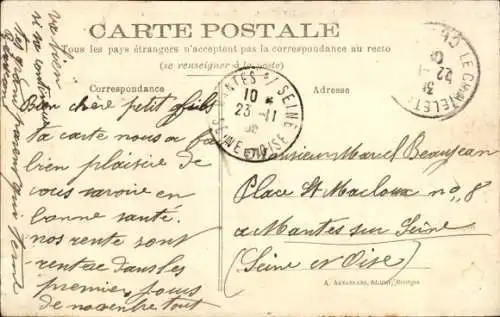 CARTE POSTALE
Tous les pays étrangers n'acceptent pas la correspondance au recto
(se renseigner à la poste)
Correspondance
Adresse
Bien cher petit fils
ta carte nous a fai
bien plaisire de
vous savoire en
bonne santé.
nos rente sont
rentée dans les
premier jours
de novembre tout
va bien
MANTES S/ SEINE
10
23 -11
SEINE ET OISE
LE CHATELET
22
Monsieur Marcel Beaujean
Place St Macloux no 8
a Mantes sur Seine
(Seine et Oise)
Bourges